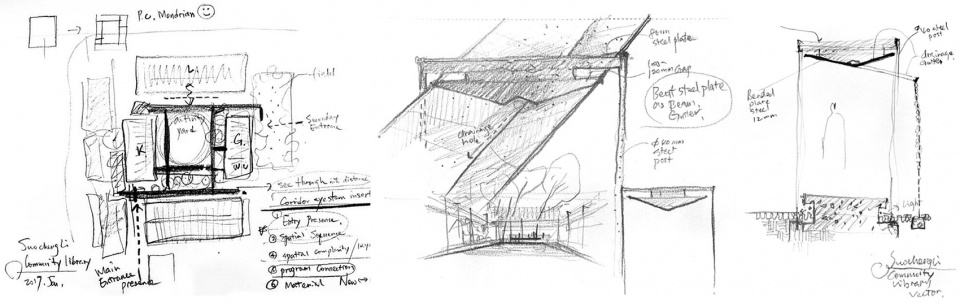 P.C. Mondrian
field
yard
K
G.
W.U
Sunday
Entrance
see through at distance
Coridor eyestem insert
Entry Presence
② Spatial Sequence
④ spatial complexity
⑤ program Connection
⑥ Material New
Suochengli
Community library
2017. Jan.
Main
Entrance
presence
8mm
steel plate
20mm Gap
Bent steel plate
as Beam
Gutter
drainage
hole
φ 60 mm
steel
post
φ 60 steel
post
drainage
Gutter
Bended
plate
steel
12mm
light
Suochengli
Community
library
Vector